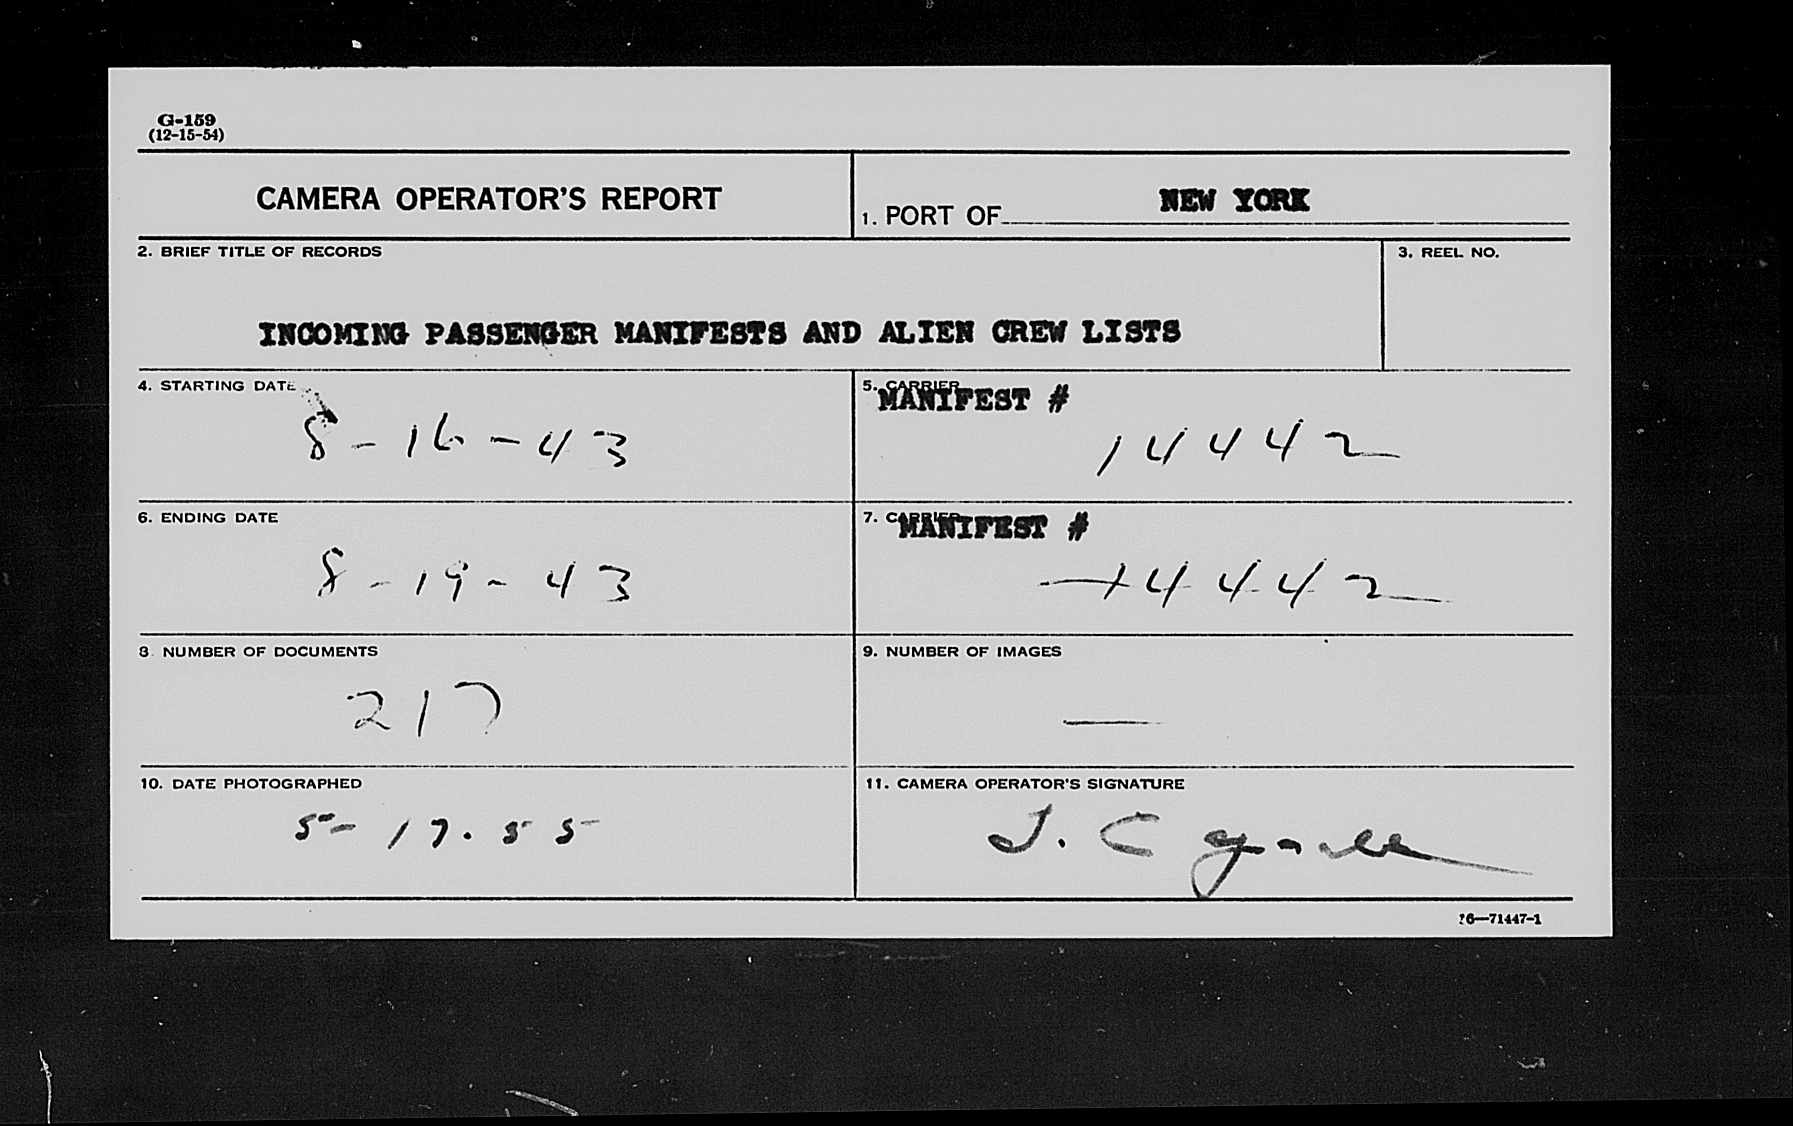 G-159
(12-15-54)
CAMERA OPERATOR'S REPORT
1. PORT OF NEW YORK
2. BRIEF TITLE OF RECORDS
3. REEL NO.
INCOMING PASSENGER MANIFESTS AND ALIEN CREW LISTS
4. STARTING DATE
5. CARRIER
MANIFEST #
8-16-43
14442
6. ENDING DATE
7. CARRIER
MANIFEST #
8-19-43
14442
8 NUMBER OF DOCUMENTS
9. NUMBER OF IMAGES
217
—
10. DATE PHOTOGRAPHED
11. CAMERA OPERATOR'S SIGNATURE
5-17.55
J. C
16—71447-1